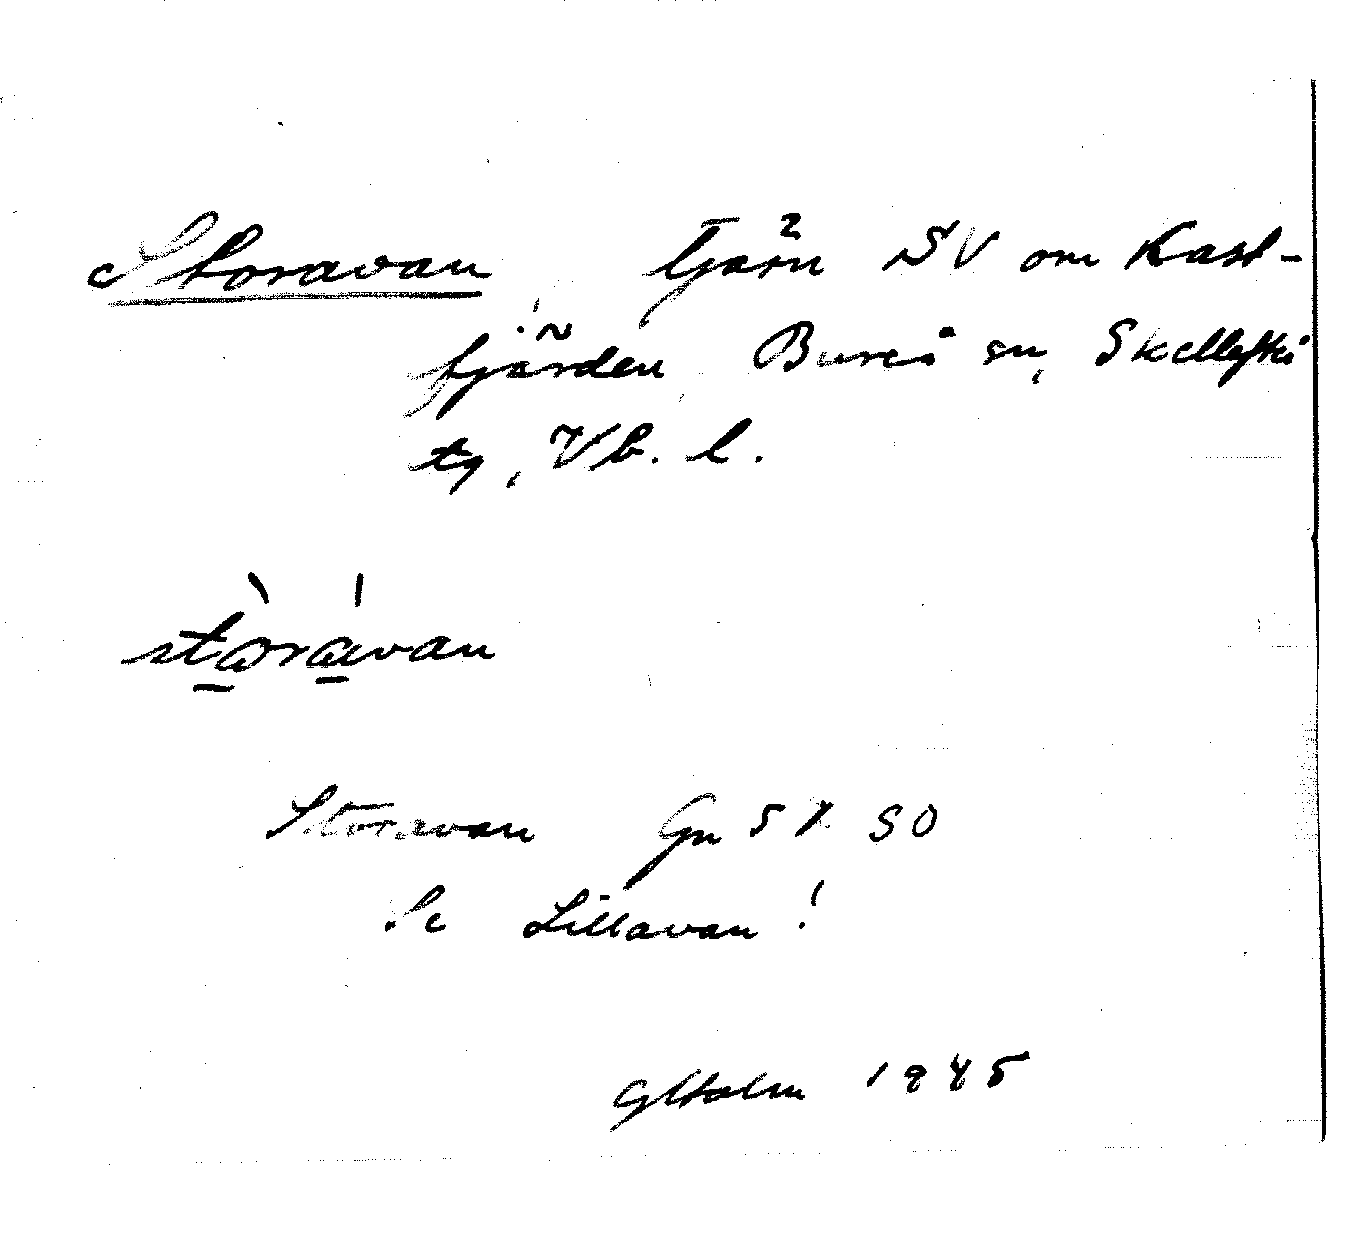 Storavan tjärn SV om Kast-
fjärden, Bureå sn, Skellefteå
tg, Vb. l.
stòrávan
Storavan Gn 57 SO
Se Lillavan!
GHolm 1945